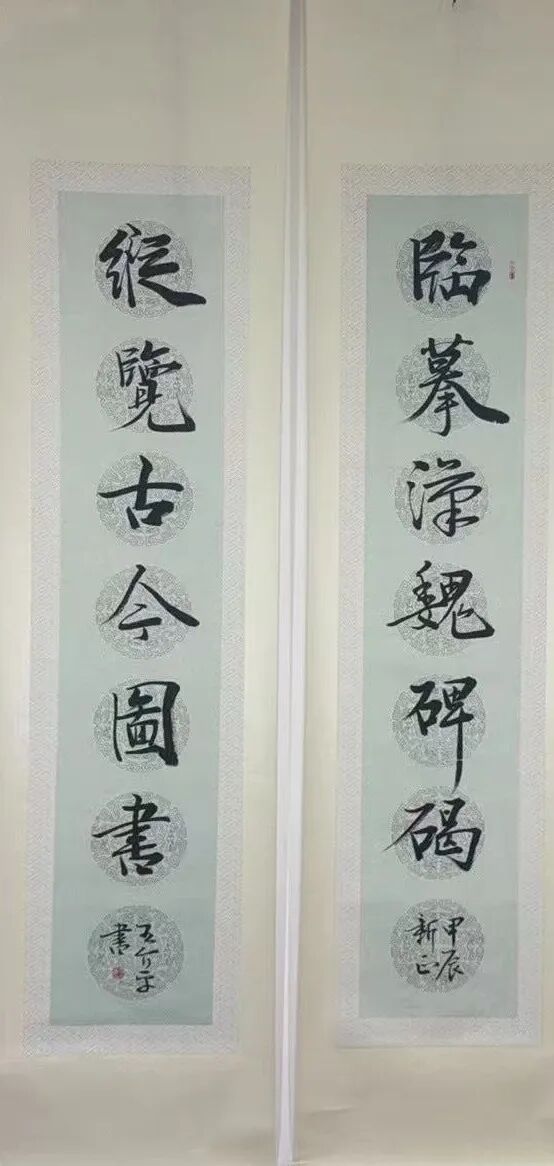 臨摹漢魏碑碣
甲辰
新正
縱覽古今圖書
王
書